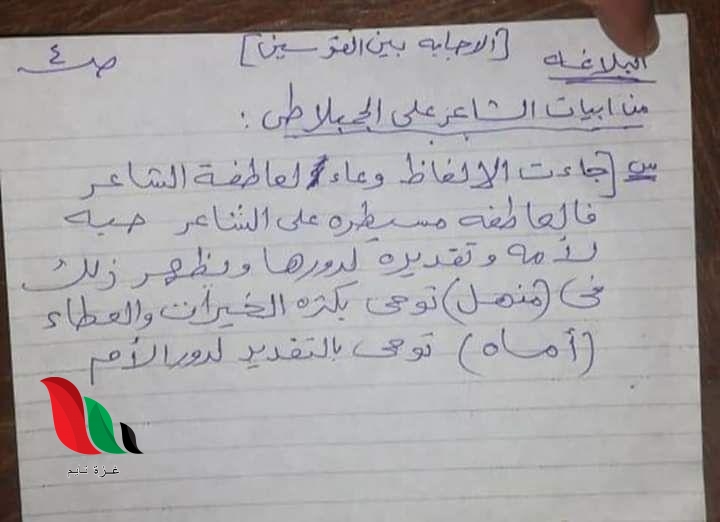 البلاغه [الاجابه بين القوسين] ص٤
من ابيات الشاعر على الجمبلاطى :
س [جاءت الالفاظ وعاء لعاطفة الشاعر
فالعاطفه مسيطره على الشاعر حبه
لأمه وتقديره لدورها ويظهر ذلك
فى (منهل) توحى بكثره الخيرات والعطاء
(أماه) توحى بالتقدير لدور الأم
غزة تايم